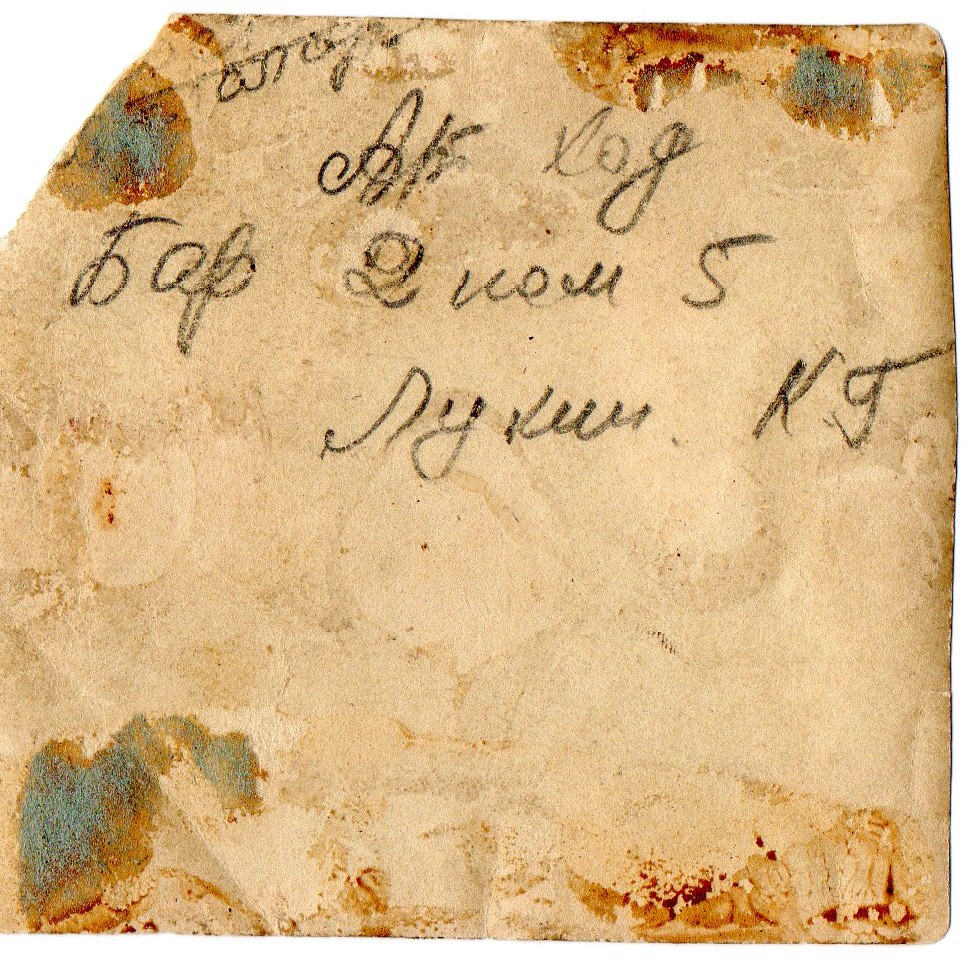 Ак ход
Бар 2 ком 5
Лукин. КГ